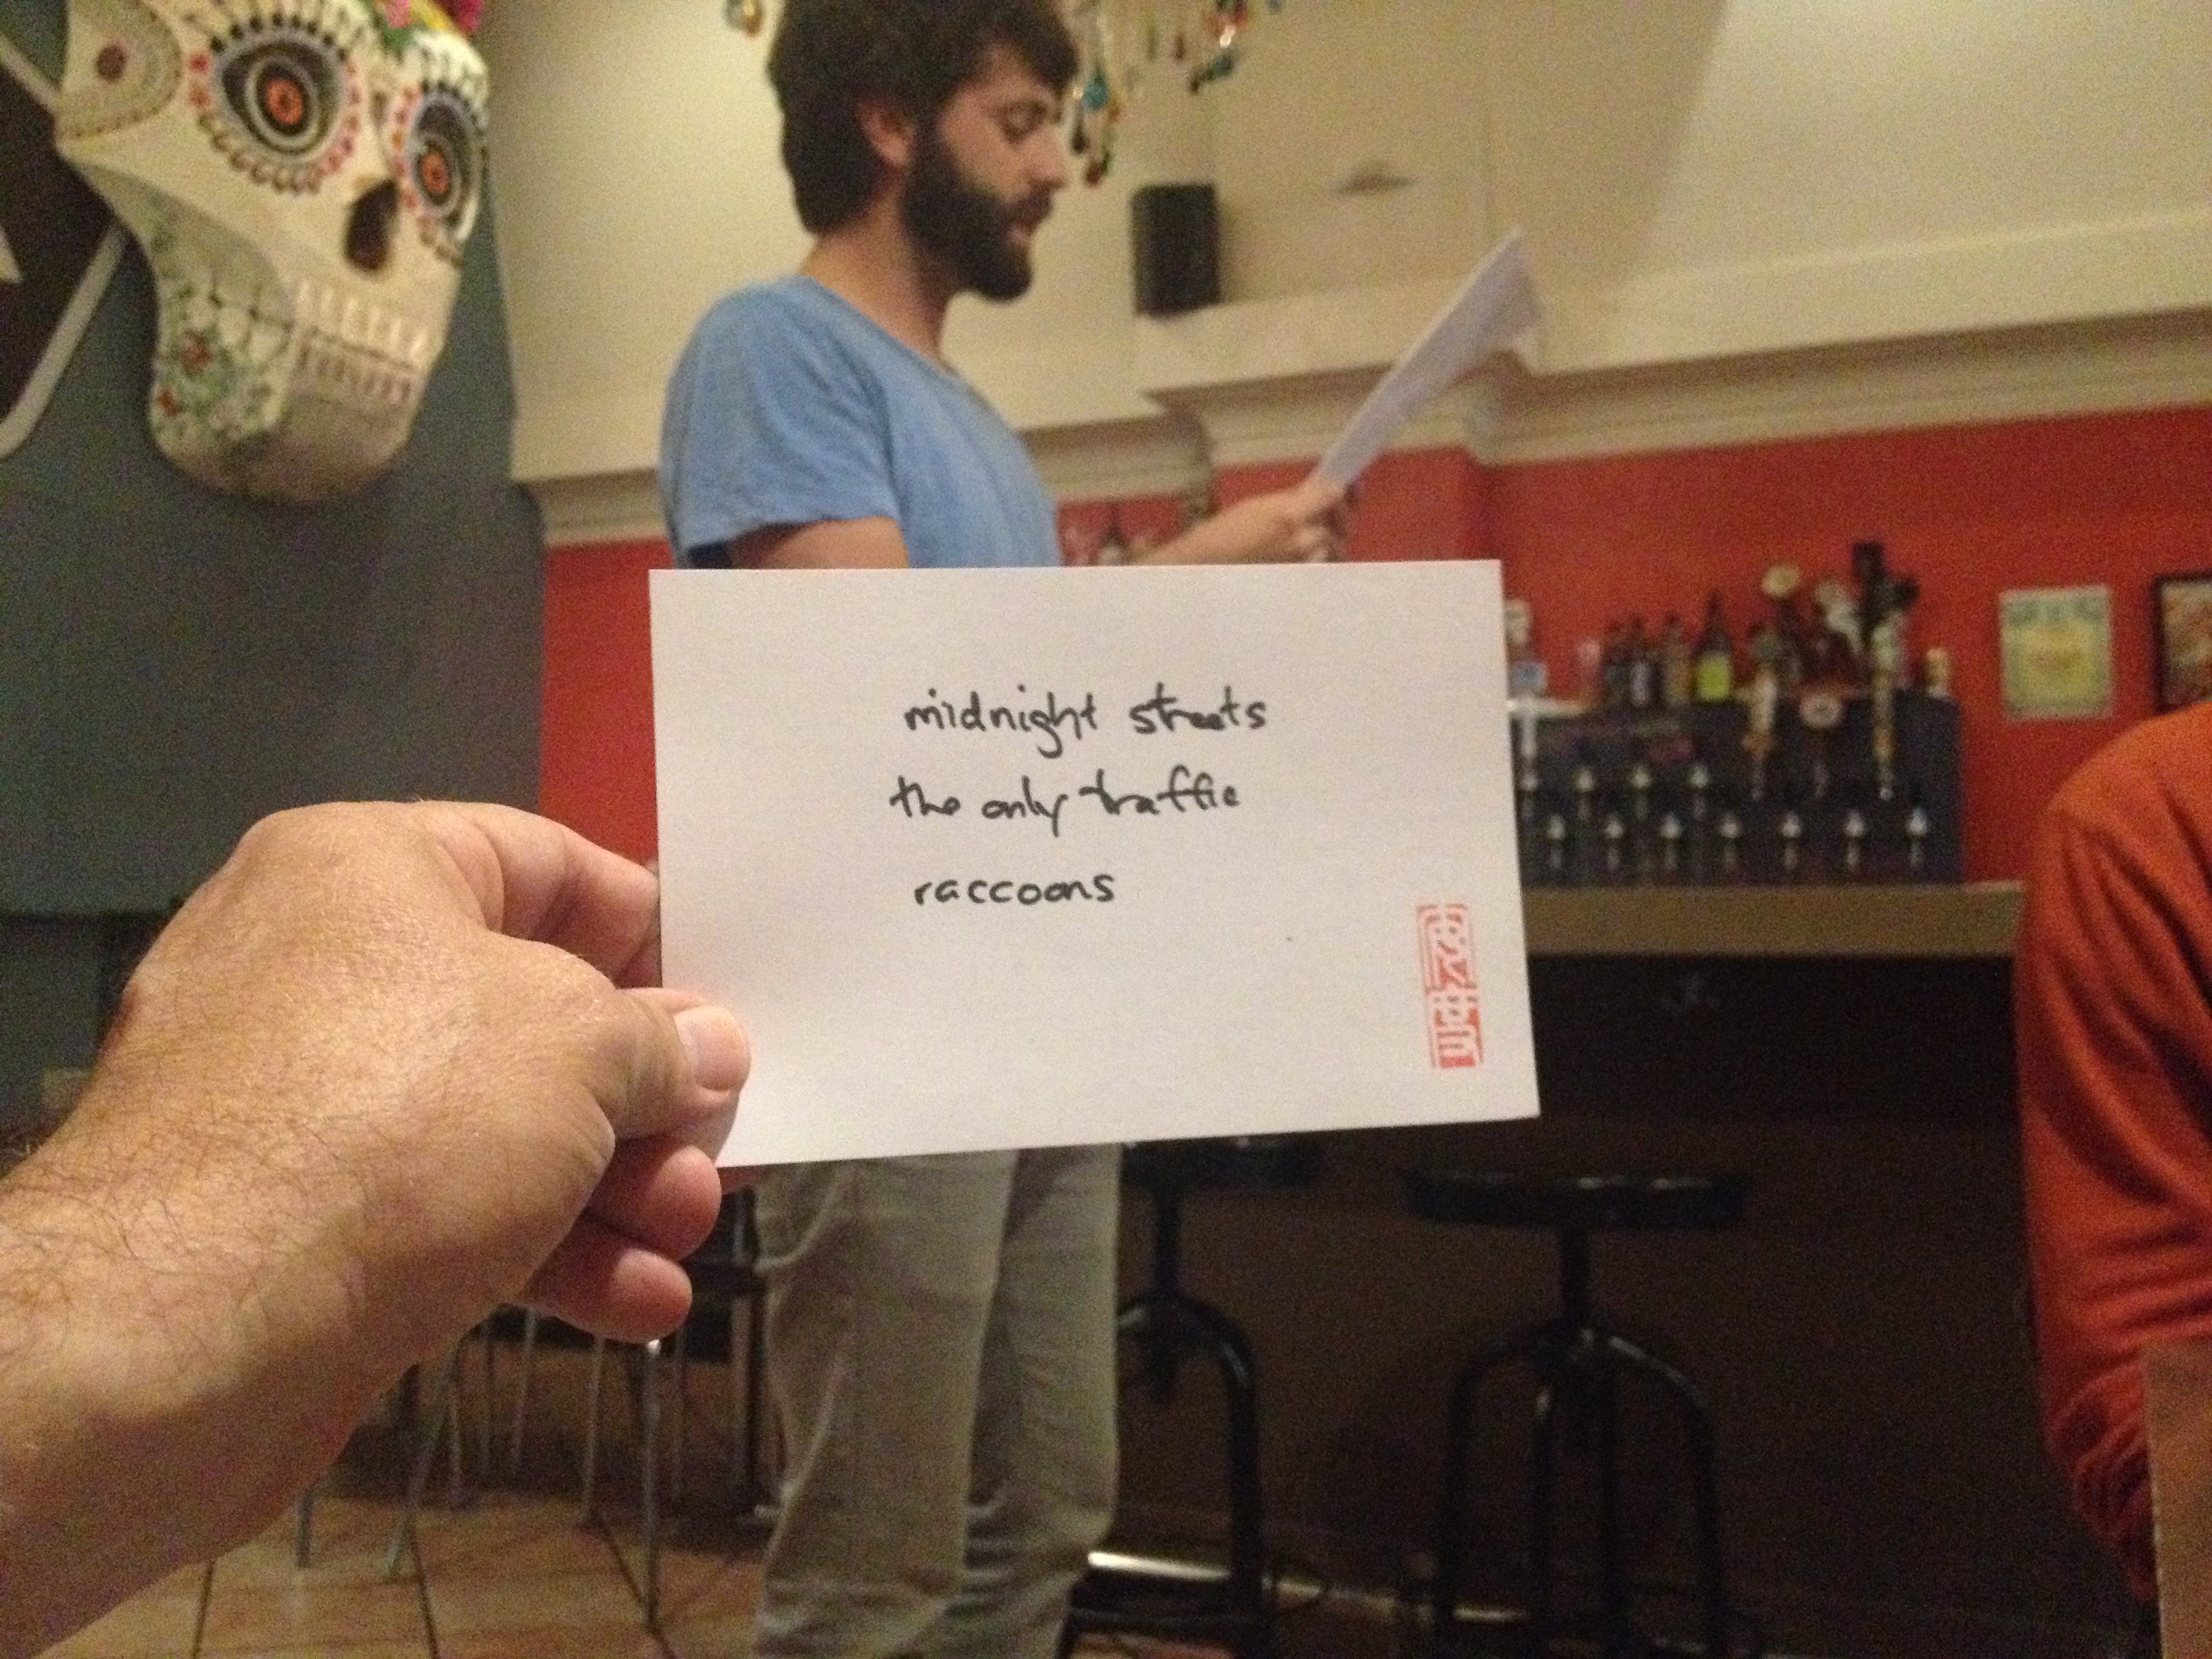 midnight streets
the only traffic
raccoons